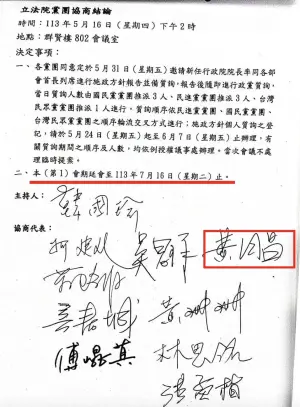 立法院黨團協商結論
時間：113年5月16日（星期四）下午2時
地點：群賢樓802會議室
決定事項：
一、各黨團同意定於5月31日（星期五）邀請新任行政院院長率同各部
會首長列席進行施政方針報告並備質詢，報告後隨即進行政黨質詢，
當日質詢人數由國民黨黨團推派3人、民進黨黨團推派3人、台灣
民眾黨黨團推派1人進行，質詢順序依民進黨黨團、國民黨黨團、
台灣民眾黨黨團之順序輪流交叉方式進行；施政方針個人質詢之登
記，請於5月24日（星期五）起至6月7日（星期五）止辦理，有
關質詢期間之順序及人數，均依例授權議事處辦理。當次會議不處
理臨時提案。
二、本（第1）會期延會至113年7月16日（星期二）止。
主持人：韓國瑜
協商代表：
柯建銘 吳思瑤 黃國昌
洪孟楷
傅崐萁 林思銘